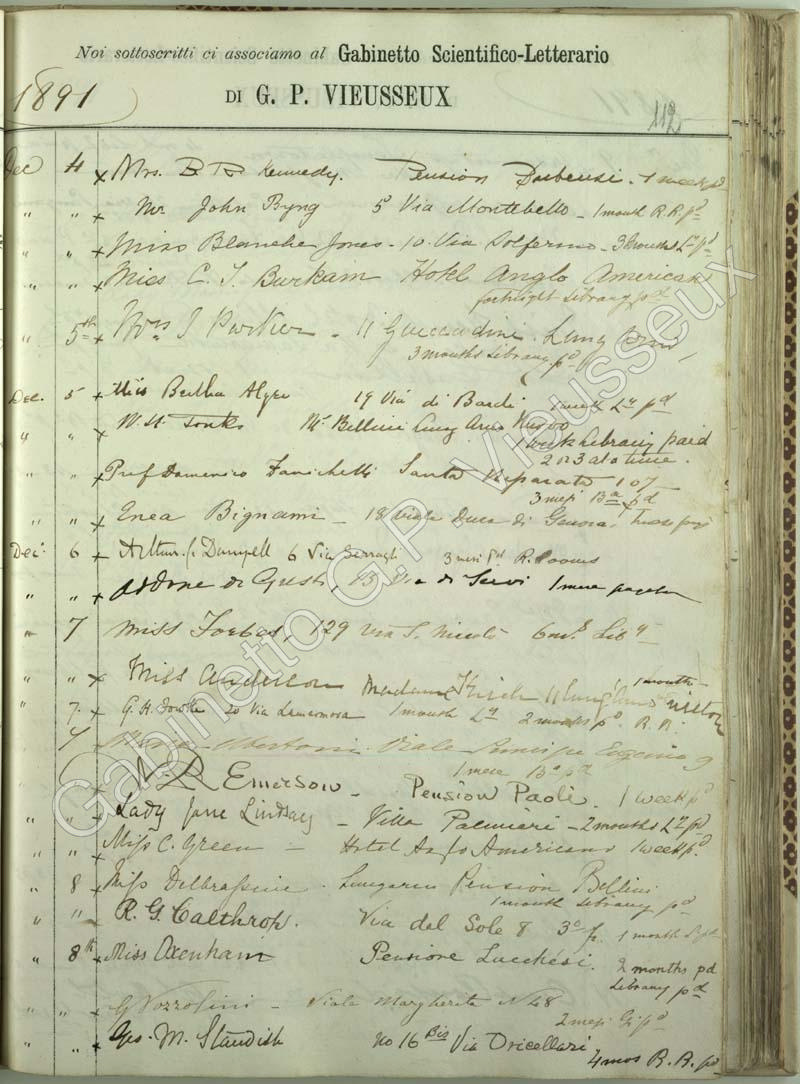 Noi sottoscritti ci associamo al Gabinetto Scientifico-Letterario
DI G. P. VIEUSSEUX
1891
112
Dec 4 x Mrs. Kennedy. Pension 1 week pd
" " x Mr John Byng 5 Via Montebello - 1 month R.R. pd
" " x Miss Blanche Jones - 10. Via Solferino - 3 months Ly pd
" " x Miss C. J. Burkam Hotel Anglo American
fortnight Library pd
" 5th x Mrs J Parker - 11 Guicciardini. Lung Arno
3 months Library pd
Dec. 5 x Miss Bertha Alger 19 Via di Bardi 1 month Ly pd
" " x W. H. Tonks Bellini Lung Arno Nuovo
1 week Library paid
2 or 3 at a time.
" " x Prof Domenico Santa Reparata 107
3 mesi Ba pd
" " x Enea Bignami - 18 Viale Duca di Genova,
Dec. 6 x Arthur 6 Via Serragli 3 mesi pd R. Rooms
" " x 13 Via di Servi 1 mese
" 7 Miss Forbes, 129 Via S. Nicolò 6 ms Liby
" " x Miss Anderson Madame 11 Lung'Arno
1 month
" 7. x G. H. 20 Via Lamarmora 1 month Ly 2 months pd R.R.
7 Maria Viale Principe Eugenio 9
1 mese Ba pd
x N. R Emerson - Pension Paoli. 1 week pd
" " x Lady Jane Lindsay - Villa Palmieri - 2 months Ly pd
" " x Miss C. Green - Hotel Anglo Americano 1 week pd
" 8 x Miss Delbrassine. Lungarno Pension Bellini
1 month Library pd
" " x R. G. Calthrop. Via del Sole 8 3o 1 month
" 8th x Miss Axenham Pensione Lucchesi. 2 months pd
Library pd
" " x G Viale Margherita N 48
2 mesi pd
" " x Geo. M. Standish no 16 Bis Via Oricellari
4 mos R.R. pd
Gabinetto G.P. Vieusseux